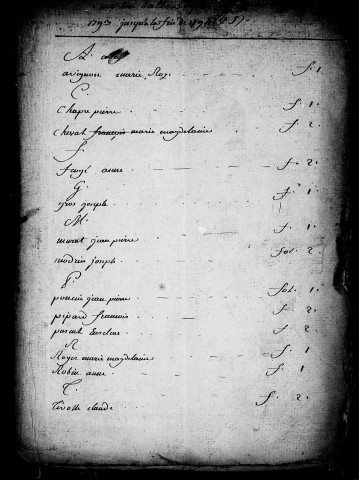 1793 jusqu'à la fin de
A.
avignon marie Roze. f. 1
C.
chapre pierre. f. 1.
chevat françois marie magdelaine f. 2.
F.
fayé anne f. 2.
G.
gros joseph. f. 1.
M.
murat jean pierre f. 1.
modrin joseph. fol. 2.
P.
poncin jean pierre fol. 1.
pipard francois f. 2.
pascut Enselme. f. 2.
R
Royer marie magdelaine f. 1
Robin anne. f. 1.
T.
claude f. 2.